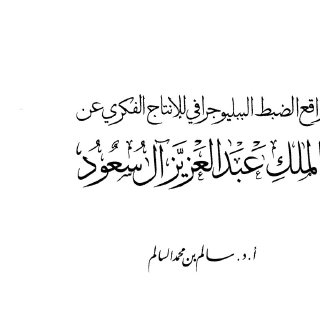 اقع الضبط الببليوجرافي للإنتاج الفكري عن
لملكِ عَبْد العَزيز آل سُعُود
أ. د. سالم بن محمد السالم